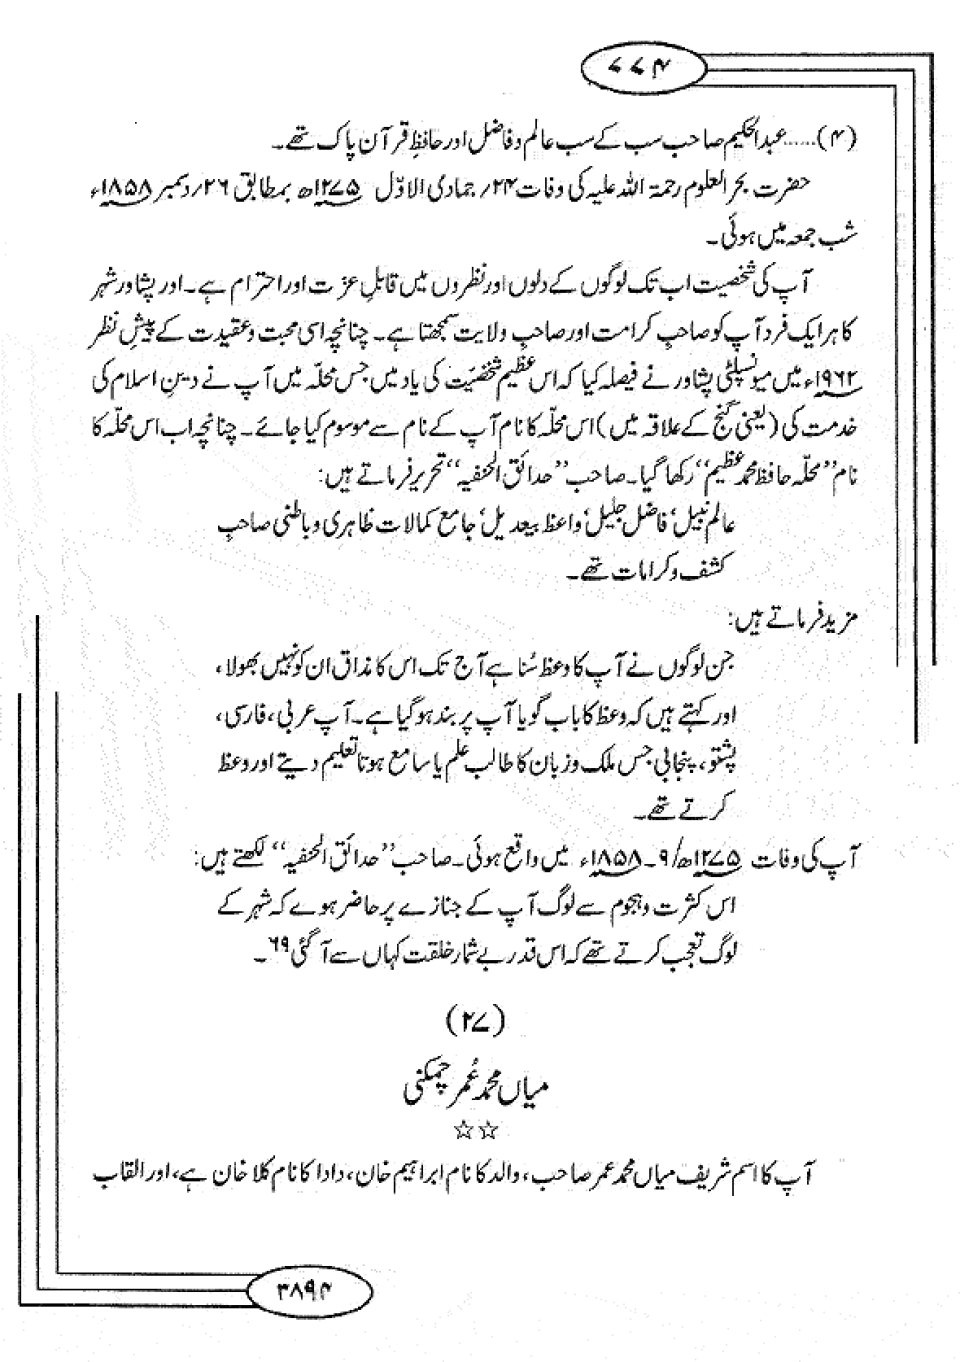 ۷۷۴
(۴)......عبدالحکیم صاحب سب کے سب عالم و فاضل اور حافظِ قرآن پاک تھے۔
حضرت بحر العلوم رحمۃ اللہ علیہ کی وفات ۲۴/ جمادی الاوّل ۱۲۷۵ھ بمطابق ۲۶/ دسمبر ۱۸۵۸ء
شب جمعہ میں ہوئی۔
آپ کی شخصیت اب تک لوگوں کے دلوں اور نظروں میں قابلِ عزت اور احترام ہے۔ اور پشاور شہر
کا ہر ایک فرد آپ کو صاحبِ کرامت اور صاحبِ ولایت سمجھتا ہے۔ چنانچہ اسی محبت و عقیدت کے پیشِ نظر
۱۹۶۲ء میں میونسپلٹی پشاور نے فیصلہ کیا کہ اس عظیم شخصیّت کی یاد میں جس محلّہ میں آپ نے دینِ اسلام کی
خدمت کی (یعنی گنج کے علاقہ میں) اس محلّہ کا نام آپ کے نام سے موسوم کیا جائے۔ چنانچہ اب اس محلّہ کا
نام ’’محلّہ حافظ محمد عظیم‘‘ رکھا گیا۔ صاحب ’’حدائق الحنفیہ‘‘ تحریر فرماتے ہیں:
عالم نبیل، فاضل جلیل، واعظ بیعدیل، جامع کمالات ظاہری و باطنی صاحبِ
کشف و کرامات تھے۔
مزید فرماتے ہیں:
جن لوگوں نے آپ کا وعظ سُنا ہے آج تک اس کا مذاق ان کو نہیں بھولا،
اور کہتے ہیں کہ وعظ کا باب گویا آپ پر بند ہو گیا ہے۔ آپ عربی، فارسی،
پشتو، پنجابی جس ملک و زبان کا طالب علم یا سامع ہوتا تعلیم دیتے اور وعظ
کرتے تھے۔
آپ کی وفات ۱۲۷۵ھ/۹۔۱۸۵۸ء میں واقع ہوئی۔ صاحب ’’حدائق الحنفیہ‘‘ لکھتے ہیں:
اس کثرت و ہجوم سے لوگ آپ کے جنازے پر حاضر ہوے کہ شہر کے
لوگ تعجب کرتے تھے کہ اس قدر بے شمار خلقت کہاں سے آ گئی ۶۹۔
(۲۷)
میاں محمد عُمر چمکنی
☆☆
آپ کا اسم شریف میاں محمد عمر صاحب، والد کا نام ابراہیم خان، دادا کا نام کلا خان ہے، اور القاب
۳۸۹۴